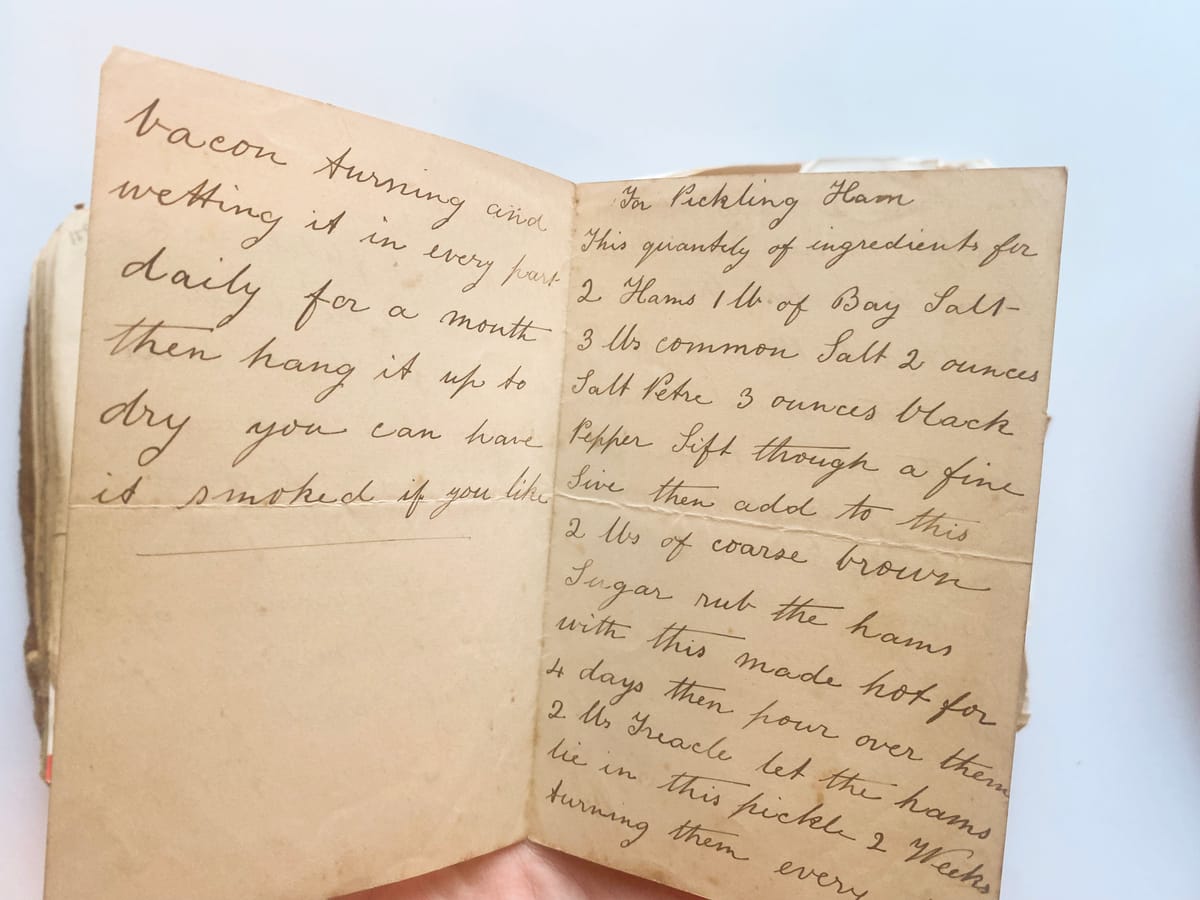 bacon turning and
wetting it in every part
daily for a month
then hang it up to
dry you can have
it smoked if you like
For Pickling Ham
This quantely of ingredients for
2 Hams 1 lb of Bay Salt
3 lbs common Salt 2 ounces
Salt Petre 3 ounces black
Pepper Sift through a fine
Sive then add to this
2 lbs of coarse brown
Sugar rub the hams
with this made hot for
4 days then pour over them
2 lbs Treacle let the hams
lie in this pickle 2 Weeks
turning them every